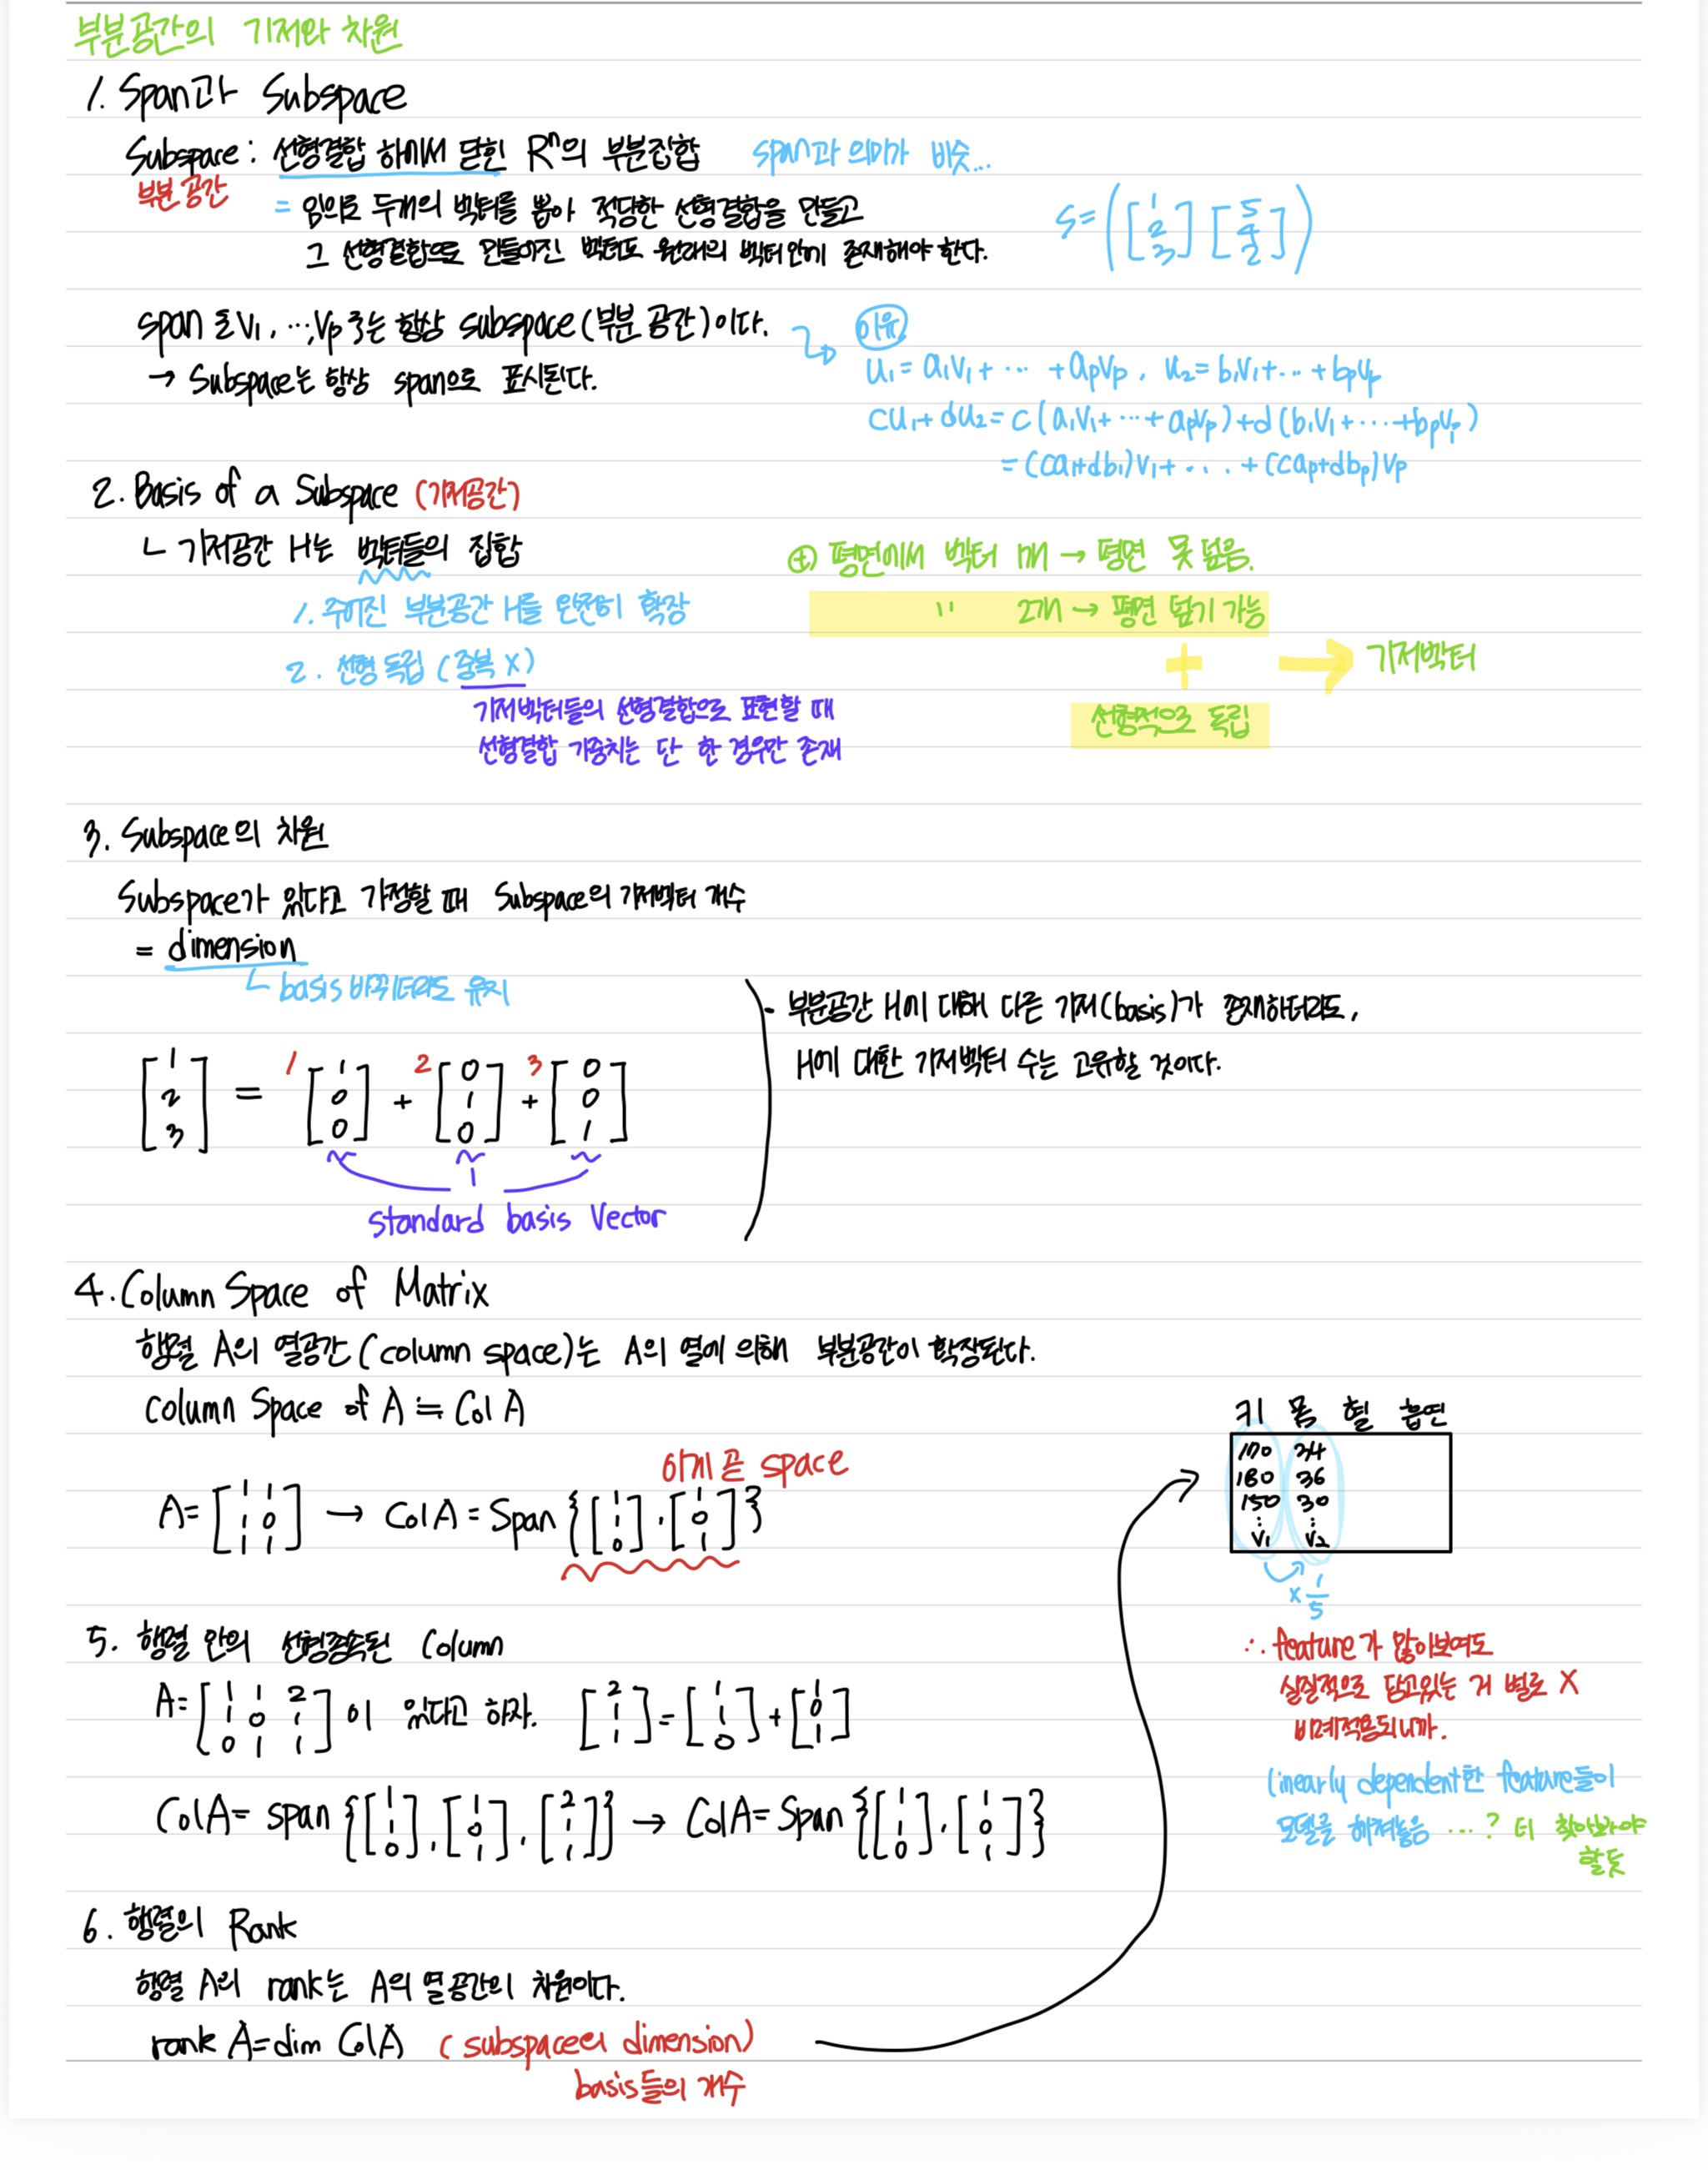 부분공간의 기저와 차원
1. Span과 Subspace
Subspace : 선형결합 하에서 닫힌 Rⁿ의 부분집합 span과 의미가 비슷...
부분 공간
= 임의로 두개의 벡터를 뽑아 적당한 선형결합을 만들고
그 선형결합으로 만들어진 벡터도 원래의 벡터안에 존재해야 한다.
S = ( [1 2 3] [5 4 2] )
span {v₁, ..., vp}는 항상 subspace(부분 공간)이다.
→ Subspace는 항상 span으로 표시된다.
이유
u₁ = a₁v₁ + ... + apvp, u₂ = b₁v₁ + ... + bpvp
cu₁ + du₂ = c(a₁v₁ + ... + apvp) + d(b₁v₁ + ... + bpvp)
= (ca₁+db₁)v₁ + .... + (cap+dbp)vp
2. Basis of a Subspace (기저공간)
ㄴ 기저공간 H는 벡터들의 집합
1. 주어진 부분공간 H를 완전히 확장
2. 선형 독립 (중복 X)
기저벡터들의 선형결합으로 표현할 때
선형결합 가중치는 단 한 경우만 존재
⊕ 평면에서 벡터 1개 → 평면 못 덮음.
" 2개 → 평면 덮기 가능
+ → 기저벡터
선형적으로 독립
3. Subspace의 차원
Subspace가 있다고 가정할 때 Subspace의 기저벡터 개수
= dimension
ㄴ basis 바뀌더라도 유지
[1 2 3] = 1 [1 0 0] + 2 [0 1 0] + 3 [0 0 1]
standard basis Vector
- 부분공간 H에 대해 다른 기저(basis)가 존재하더라도,
H에 대한 기저벡터 수는 고유할 것이다.
4. Column Space of Matrix
행렬 A의 열공간(column space)는 A의 열에 의해 부분공간이 확장된다.
column Space of A ≒ Col A
이게 곧 space
A = [1 1 / 1 0 / 1 1] → Col A = Span { [1 1 0] , [1 0 1] }
5. 행렬 안의 선형종속된 Column
A = [1 1 2 / 1 0 1 / 0 1 1] 이 있다고 하자. [2 1 1] = [1 1 0] + [1 0 1]
Col A = span { [1 1 0], [1 0 1], [2 1 1] } → Col A = Span { [1 1 0], [1 0 1] }
6. 행렬의 Rank
행렬 A의 rank는 A의 열공간의 차원이다.
rank A = dim Col A (subspace의 dimension)
basis들의 개수
키 몸 혈 흡연
170 34
180 36
150 30
⋮ ⋮
v₁ v₂
× 1/5
∴ feature가 많아보여도
실질적으로 담고있는 거 별로 X
비례적용되니까.
linearly dependent한 feature들이
모델을 해쳐놓음 ...? 더 찾아봐야
할듯